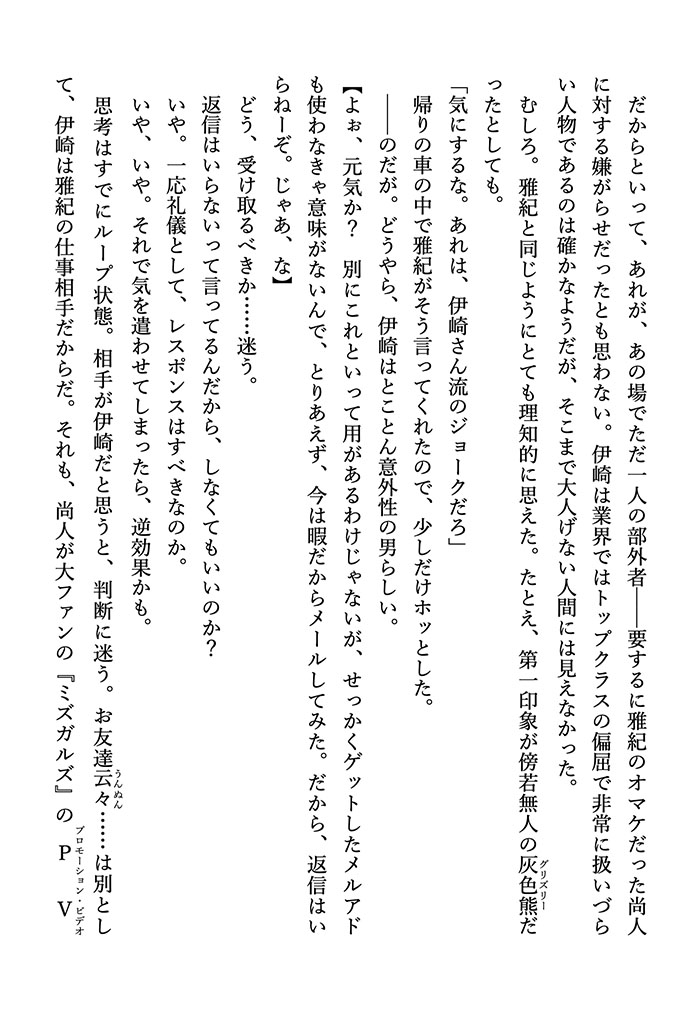 だからといって、あれが、あの場でただ一人の部外者――要するに雅紀のオマケだった尚人
に対する嫌がらせだったとも思わない。伊崎は業界ではトップクラスの偏屈で非常に扱いづら
い人物であるのは確かなようだが、そこまで大人げない人間には見えなかった。
むしろ。雅紀と同じようにとても理知的に思えた。たとえ、第一印象が傍若無人の灰色熊だ
グリズリー
ったとしても。
「気にするな。あれは、伊崎さん流のジョークだろ」
帰りの車の中で雅紀がそう言ってくれたので、少しだけホッとした。
――のだが。どうやら、伊崎はとことん意外性の男らしい。
【よぉ、元気か？　別にこれといって用があるわけじゃないが、せっかくゲットしたメルアド
も使わなきゃ意味がないんで、とりあえず、今は暇だからメールしてみた。だから、返信はい
らねーぞ。じゃあ、な】
どう、受け取るべきか……迷う。
返信はいらないって言ってるんだから、しなくてもいいのか？
いや。一応礼儀として、レスポンスはすべきなのか。
いや、いや。それで気を遣わせてしまったら、逆効果かも。
思考はすでにループ状態。相手が伊崎だと思うと、判断に迷う。お友達云々……は別とし
うんぬん
て、伊崎は雅紀の仕事相手だからだ。それも、尚人が大ファンの『ミズガルズ』のＰＶ
プロモーション・ビデオ